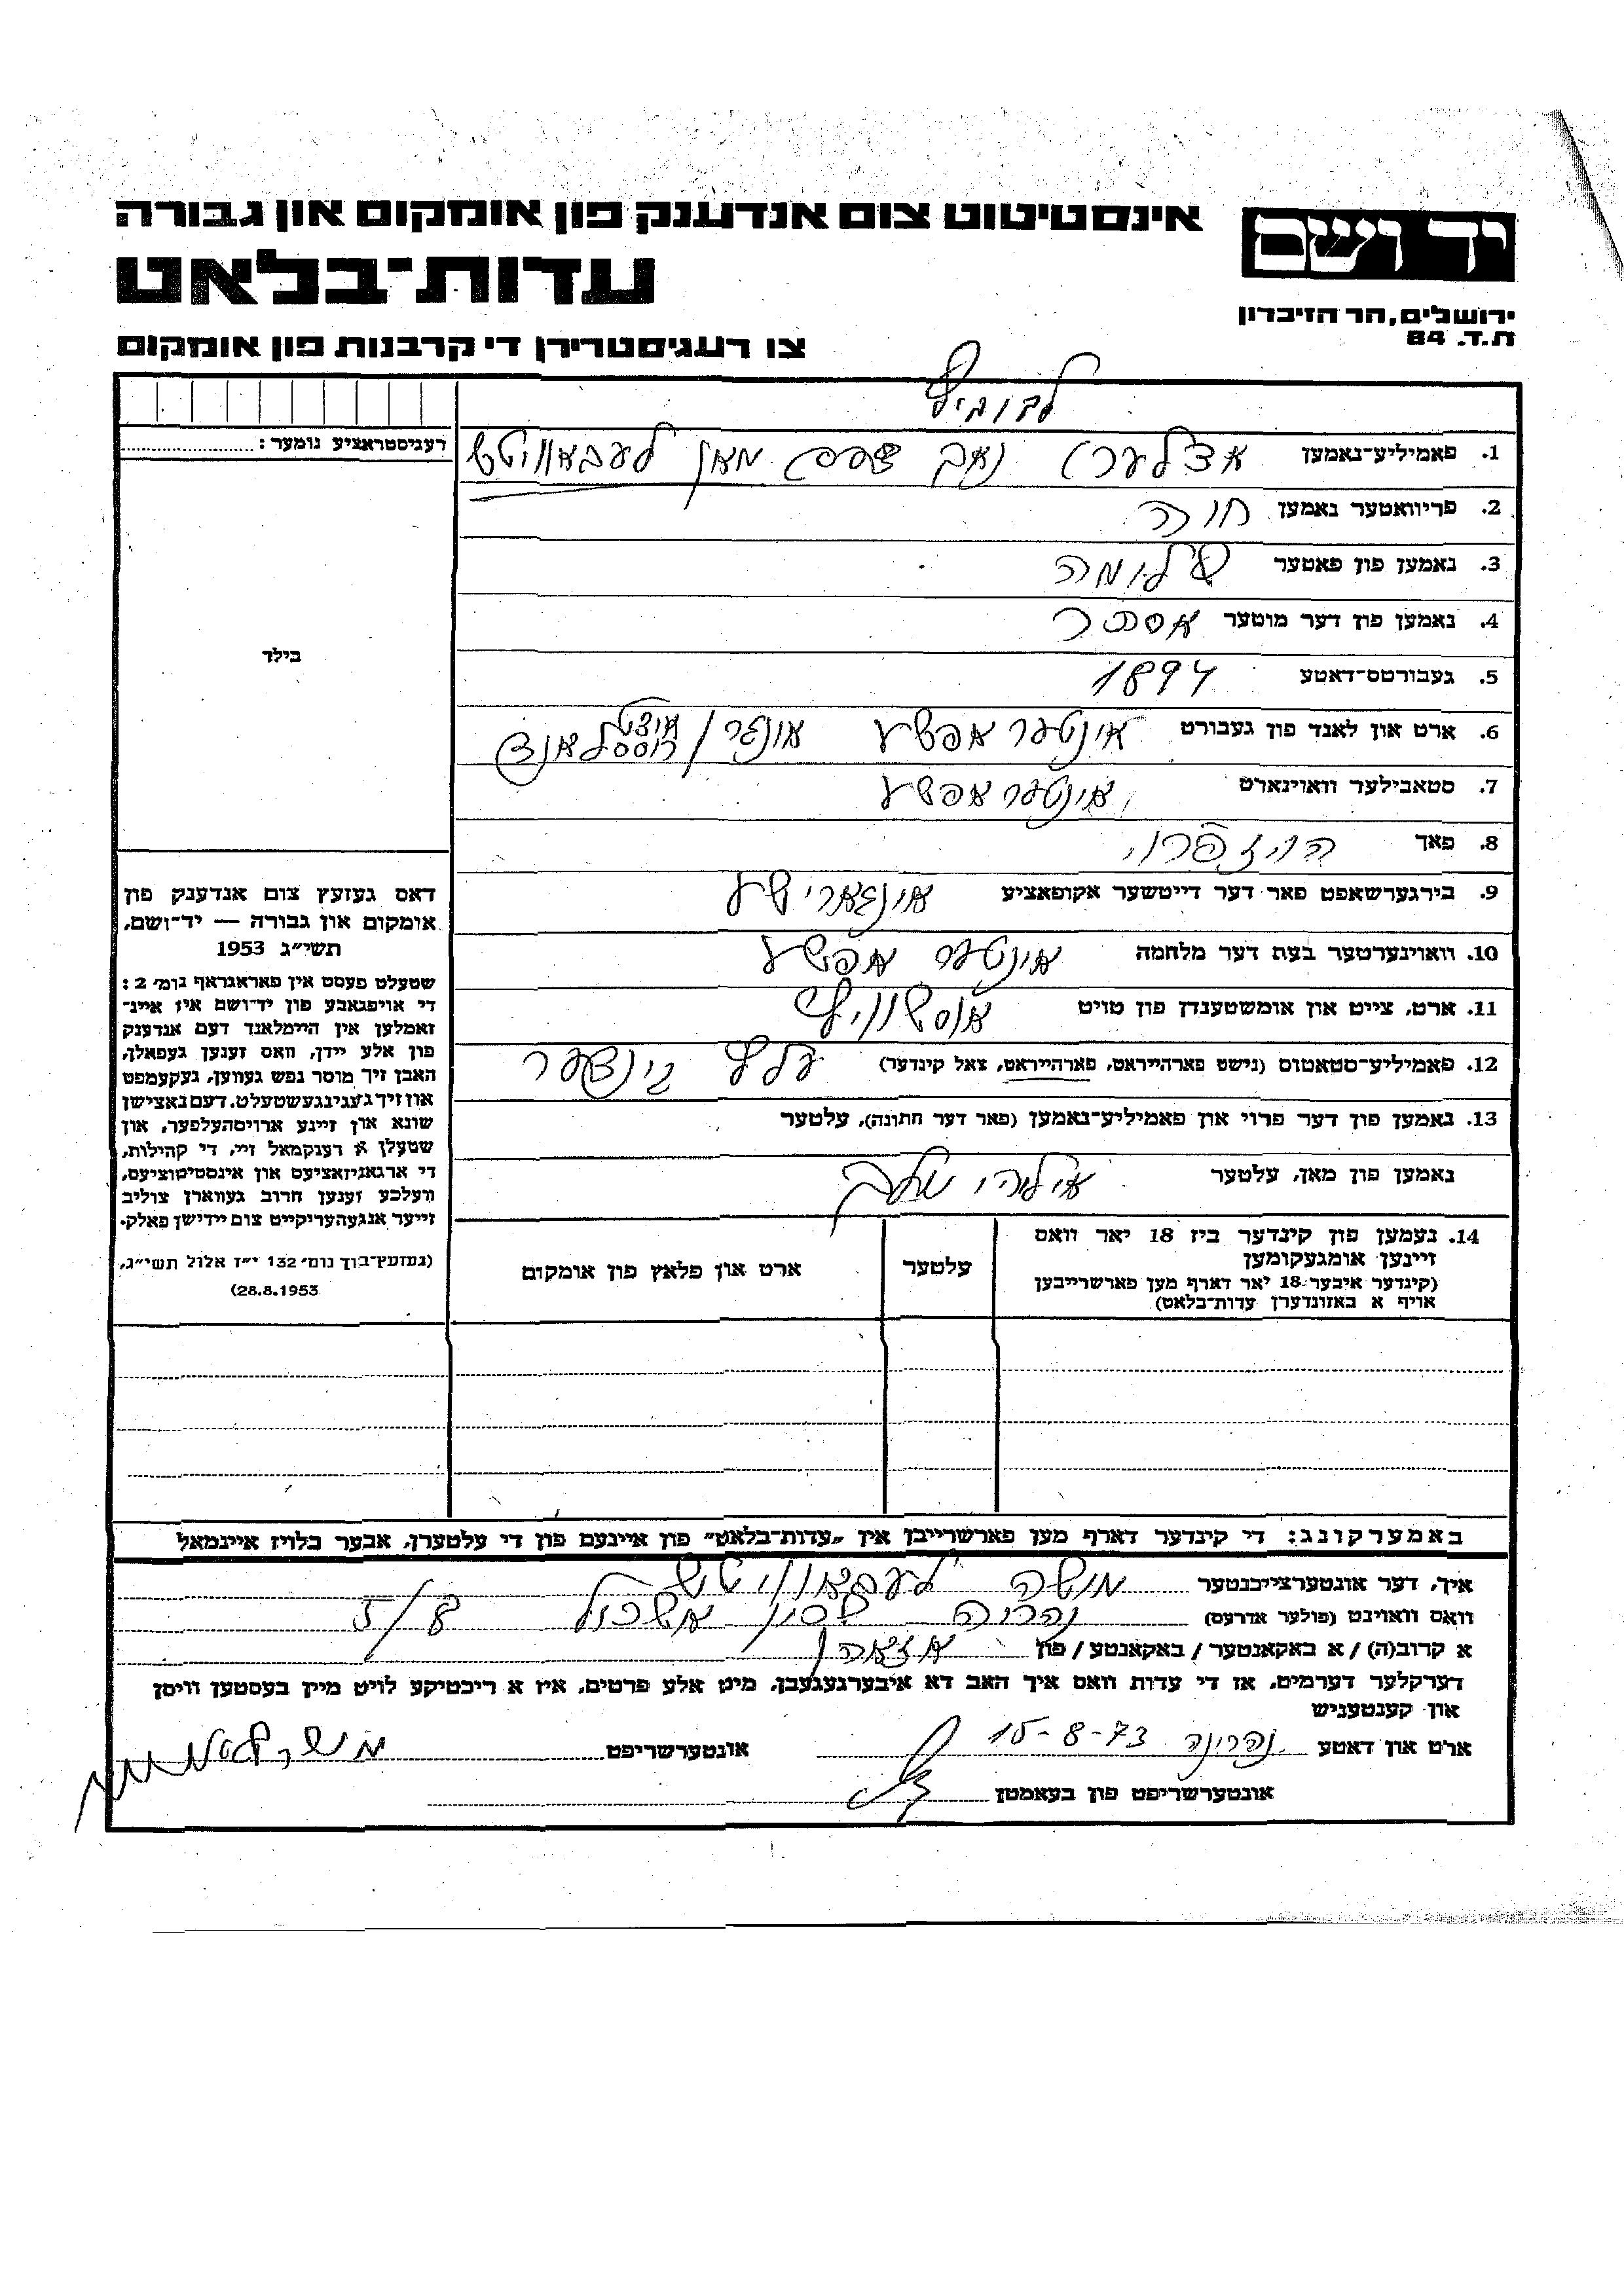 יד ושם
ירושלים, הר הזיכרון
ת.ד. 84
אינסטיטוט צום אנדענק פון אומקום און גבורה
עדות-בלאט
צו רעגיסטרירן די קרבנות פון אומקום
לבוביץ
רעגיסטראציע נומער:
1. פאמיליע-נאמען אדלער נאך מאן לעבאוויטש
2. פריוואטער נאמען חוה
3. נאמען פון פאטער שלומה
4. נאמען פון דער מוטער אסתר
5. געבורטס-דאטע 1894
6. ארט און לאנד פון געבורט אינטער אפשע אונגר / איצט רוססלאנד
7. סטאבילער וואוינארט אינטער אפשע
8. פאך הויזפרוי
9. בירגערשאפט פאר דער דייטשער אקופאציע אונגארישע
10. וואוינערטער בעת דער מלחמה אינטער אפשע
11. ארט, צייט און אומשטענדן פון טויט אושוויץ
12. פאמיליע-סטאטוס (נישט פארהייראט, פארהייראט, צאל קינדער) עלף קינדער
13. נאמען פון דער פרוי און פאמיליע-נאמען (פאר דער חתונה), עלטער
נאמען פון מאן, עלטער
14. נעמען פון קינדער ביז 18 יאר וואס
זיינען אומגעקומען
(קינדער איבער 18 יאר דארף מען פארשרייבן
אויף א באזונדערן עדות-בלאט)
עלטער
ארט און פלאץ פון אומקום
בילד
דאס געזעץ צום אנדענק פון
אומקום און גבורה — יד-ושם,
תשי״ג 1953
שטעלט פעסט אין פאראגראף נומ׳ 2:
די אויפגאבע פון יד-ושם איז איינ-
זאמלען אין היימלאנד דעם אנדענק
פון אלע יידן, וואס זענען געפאלן,
האבן זיך מוסר נפש געווען, געקעמפט
און זיך געגינגעשטעלט. דעם נאצישן
שונא און זיינע ארויסהעלפער, און
שטעלן א דענקמאל זיי, די קהילות,
די ארגאניזאציעס און אינסטיטוציעס,
וועלכע זענען חרוב געווארן צוליב
זייער אנגעהעריקייט צום יידישן פאלק.
(געזעץ-בוך נומ׳ 132 י״ז אלול תשי״ג,
28.8.1953)
באמערקונג: די קינדער דארף מען פארשרייבן אין „עדות-בלאט״ פון איינעם פון די עלטערן, אבער בלויז איינמאל
איך, דער אונטערצייכנטער משה לעבאוויטש
וואס וואוינט (פולער אדרעס) נהריה שכון אשכול 5/8
א קרוב(ה) / א באקאנטער / באקאנטע / פון
דערקלער דערמים, אז די עדות וואס איך האב דא איבערגעגעבן, מיט אלע פרטים, איז א ריכטיקע לויט מיין בעסטען וויסן
און קענטעניש
ארט און דאטע נהריה 15-8-73 אונטערשריפט
אונטערשריפט פון בעאמטן